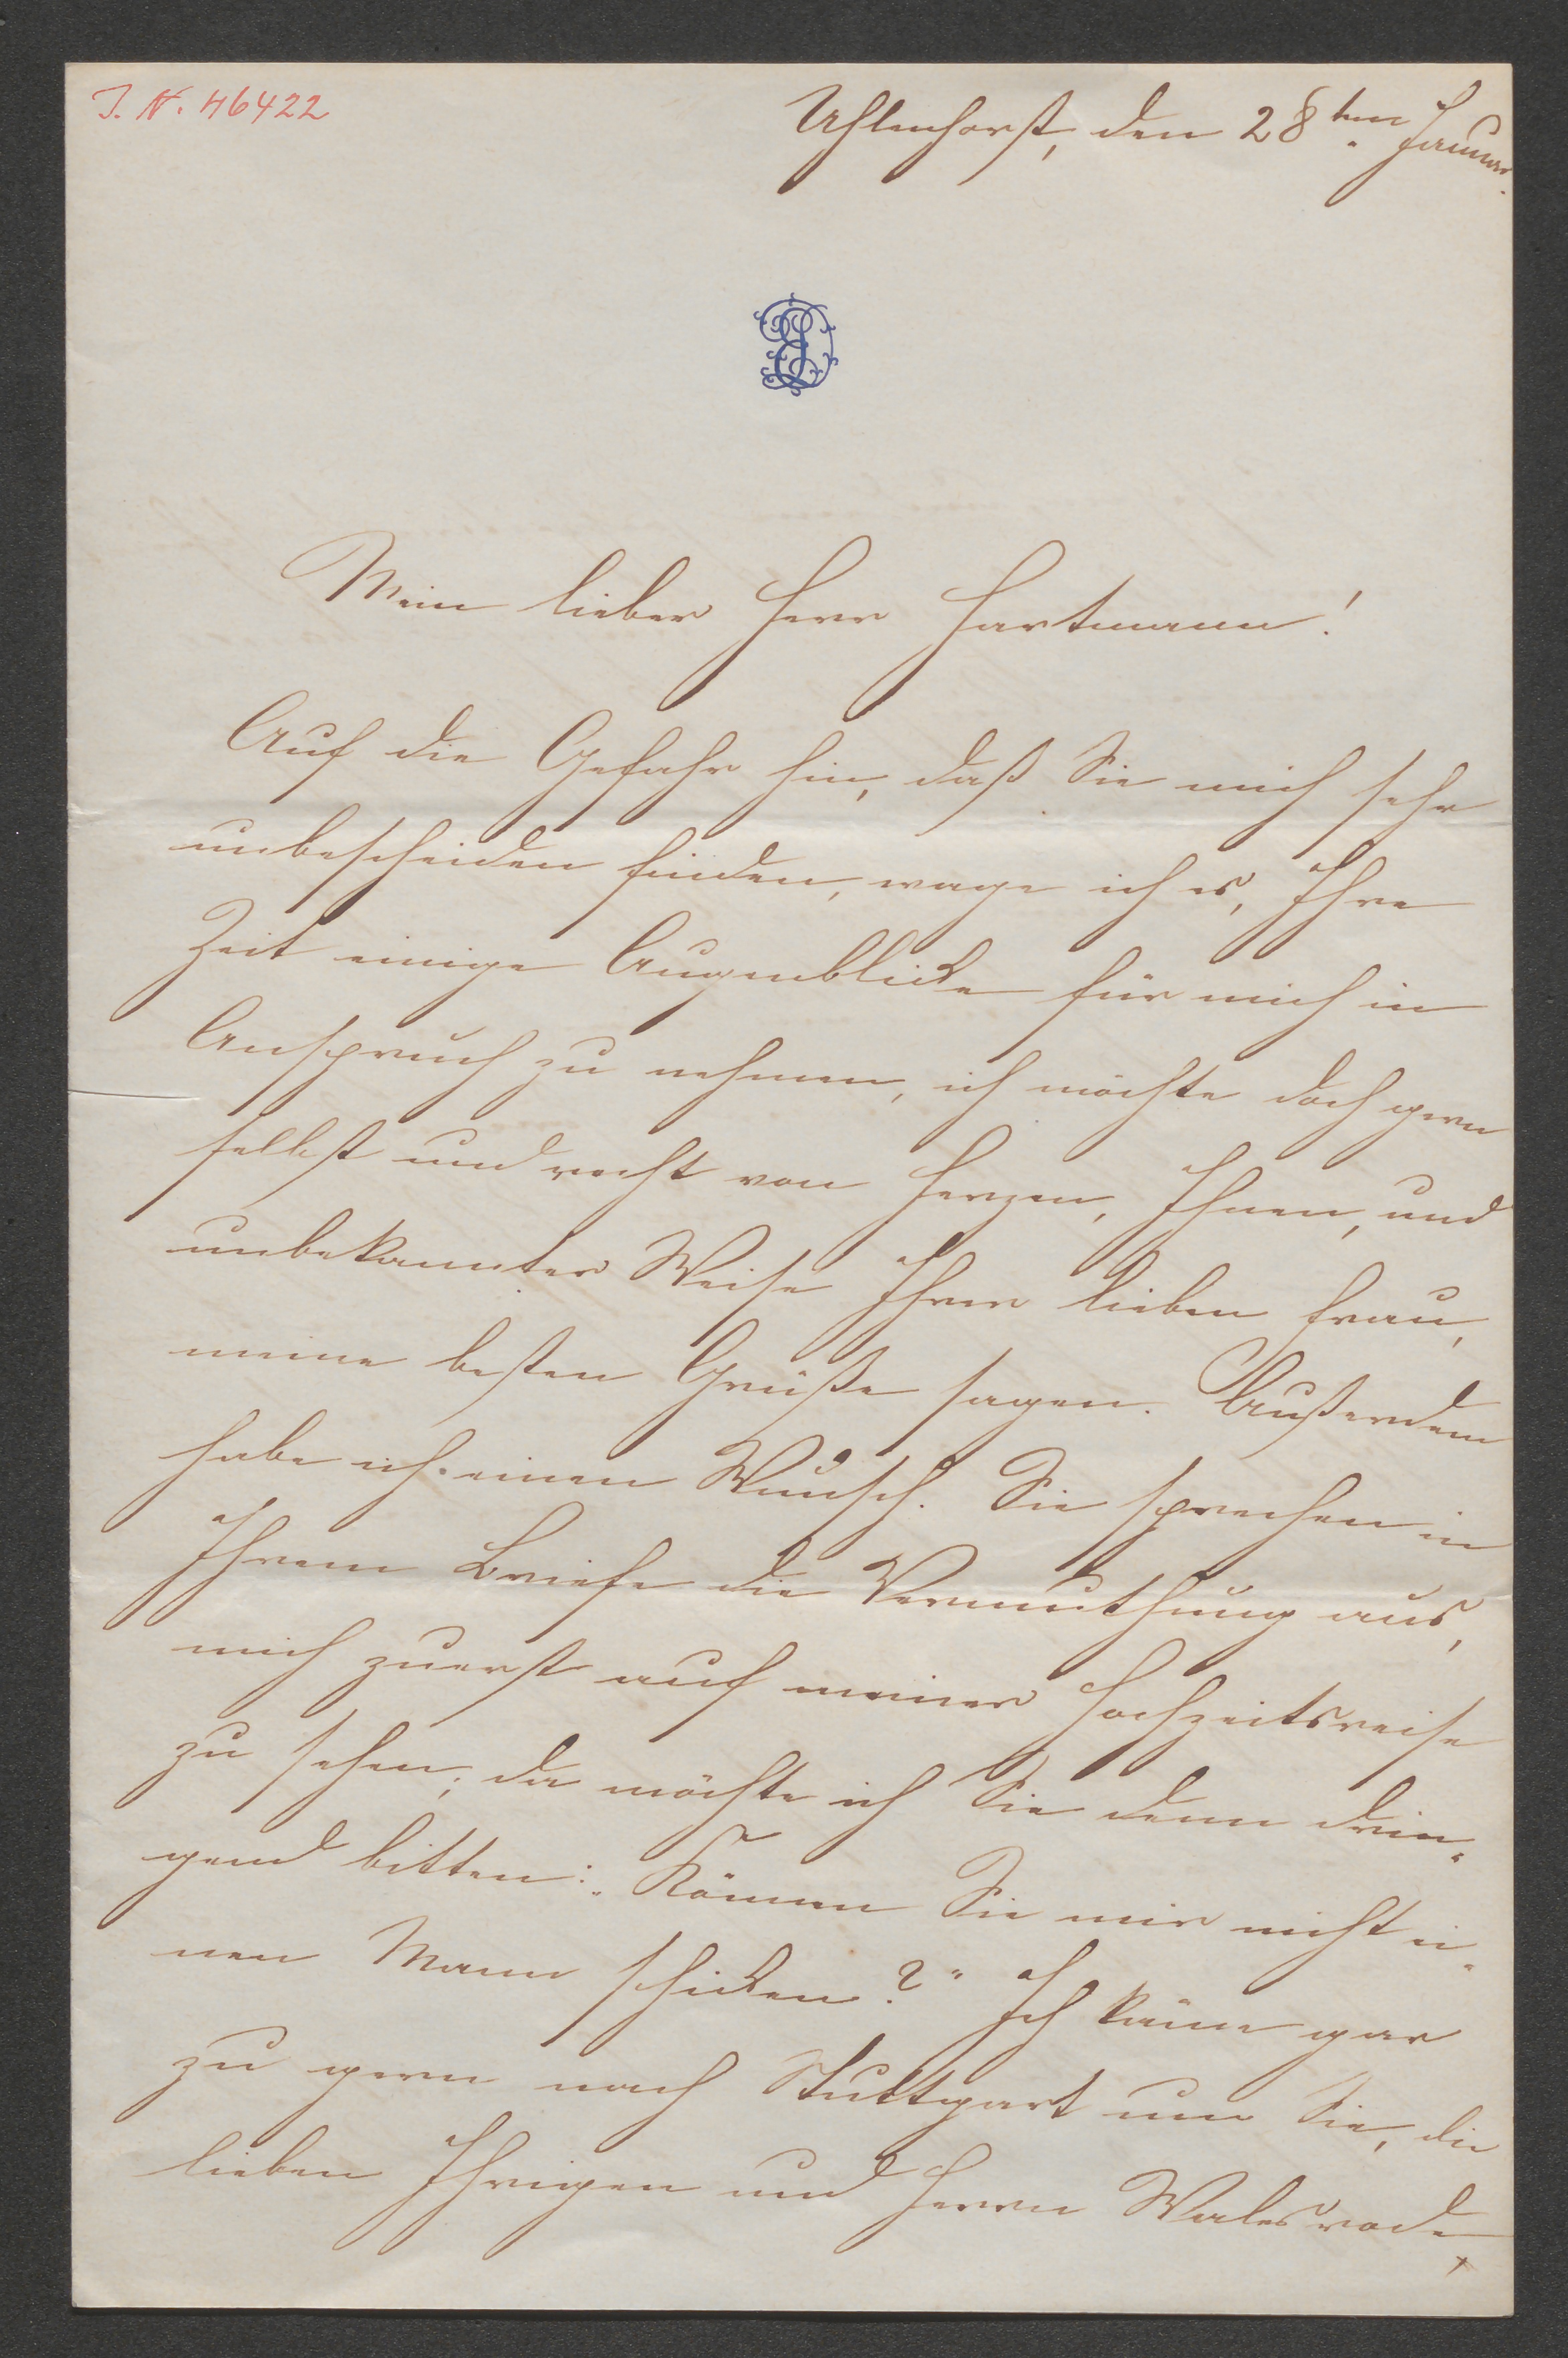 J. N. 46422
Uhlenhorst, den 28ten. Januar.
Mein lieber Herr Hartmann!
Auf die Gefahr hin, daß Sie mich sehr
unbescheiden finden, wage ich es, Ihre
Zeit einige Augenblicke für mich in
Anspruch zu nehmen, ich möchte doch gern
selbst und recht von Herzen, Ihnen, und
unbekannter Weise Ihrer lieben Frau,
meine besten Grüße sagen. Außerdem
habe ich einen Wunsch. Sie sprechen in
Ihrem Briefe die Vermuthung aus,
mich zuerst auf meiner Hochzeitsreise
zu sehen; da möchte ich Sie denn drin-
gend bitten: „Können Sie mir nicht ei-
nen Mann schicken?“ Ich käme gar
zu gern nach Stuttgart um Sie, die
lieben Ihrigen und Herrn Walesrode